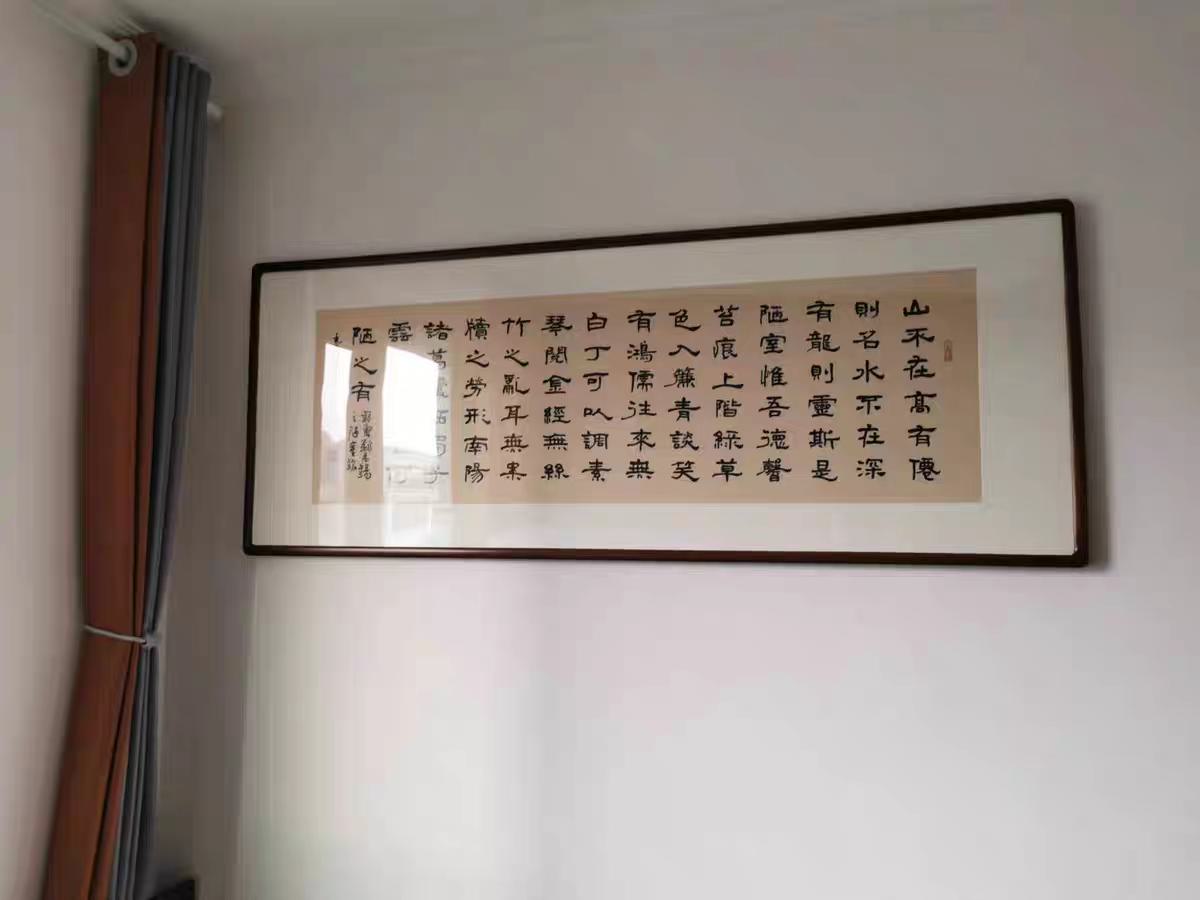 山不在高有僊
則名水不在深
有龍則靈斯是
陋室惟吾德馨
苔痕上階綠草
色入簾青談笑
有鴻儒往來無
白丁可以調素
琴閱金經無絲
竹之亂耳無案
牘之勞形南陽
諸葛廬西蜀子
雲
陋之有
劉禹錫
之陋室銘